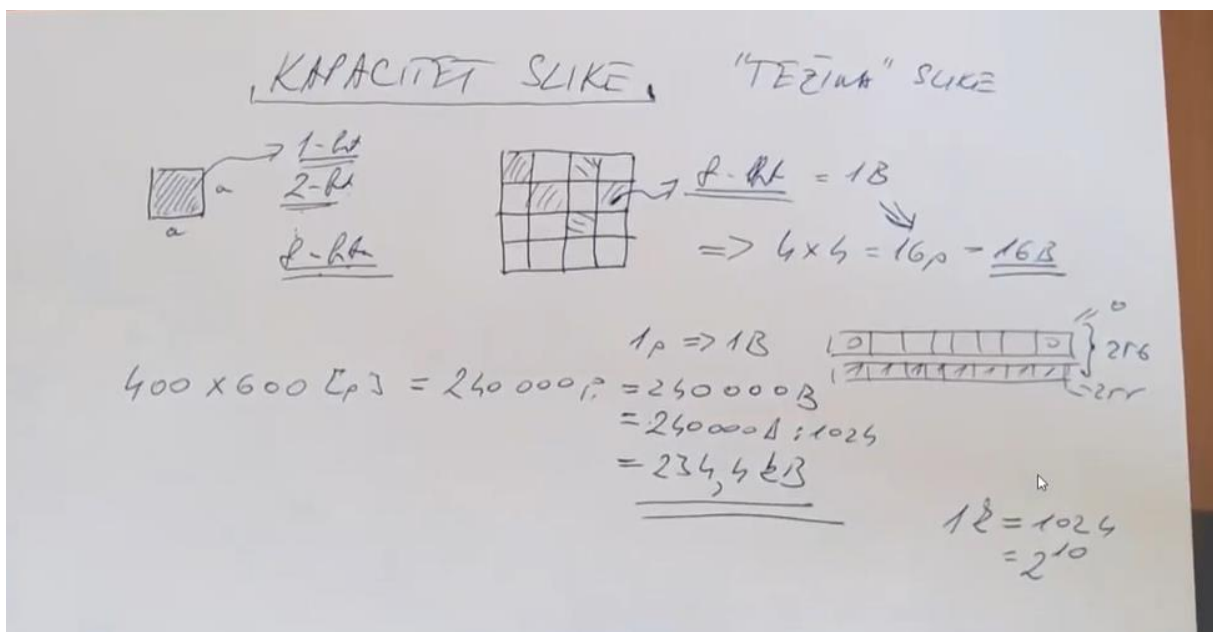 KAPACITET SLIKE "TEŽINA" SLIKE
1-bit
2-bit
a
a
8-bita
8-bit = 1B
=> 4x4 = 16p = 16B
1p => 1B
0 0
= 0
256
1 1 1 1 1 1 1 1
= 255
400 x 600 [p] = 240 000 p = 240 000 B
= 240 000 B : 1024
= 234,4 kB
1k = 1024
= 2^10